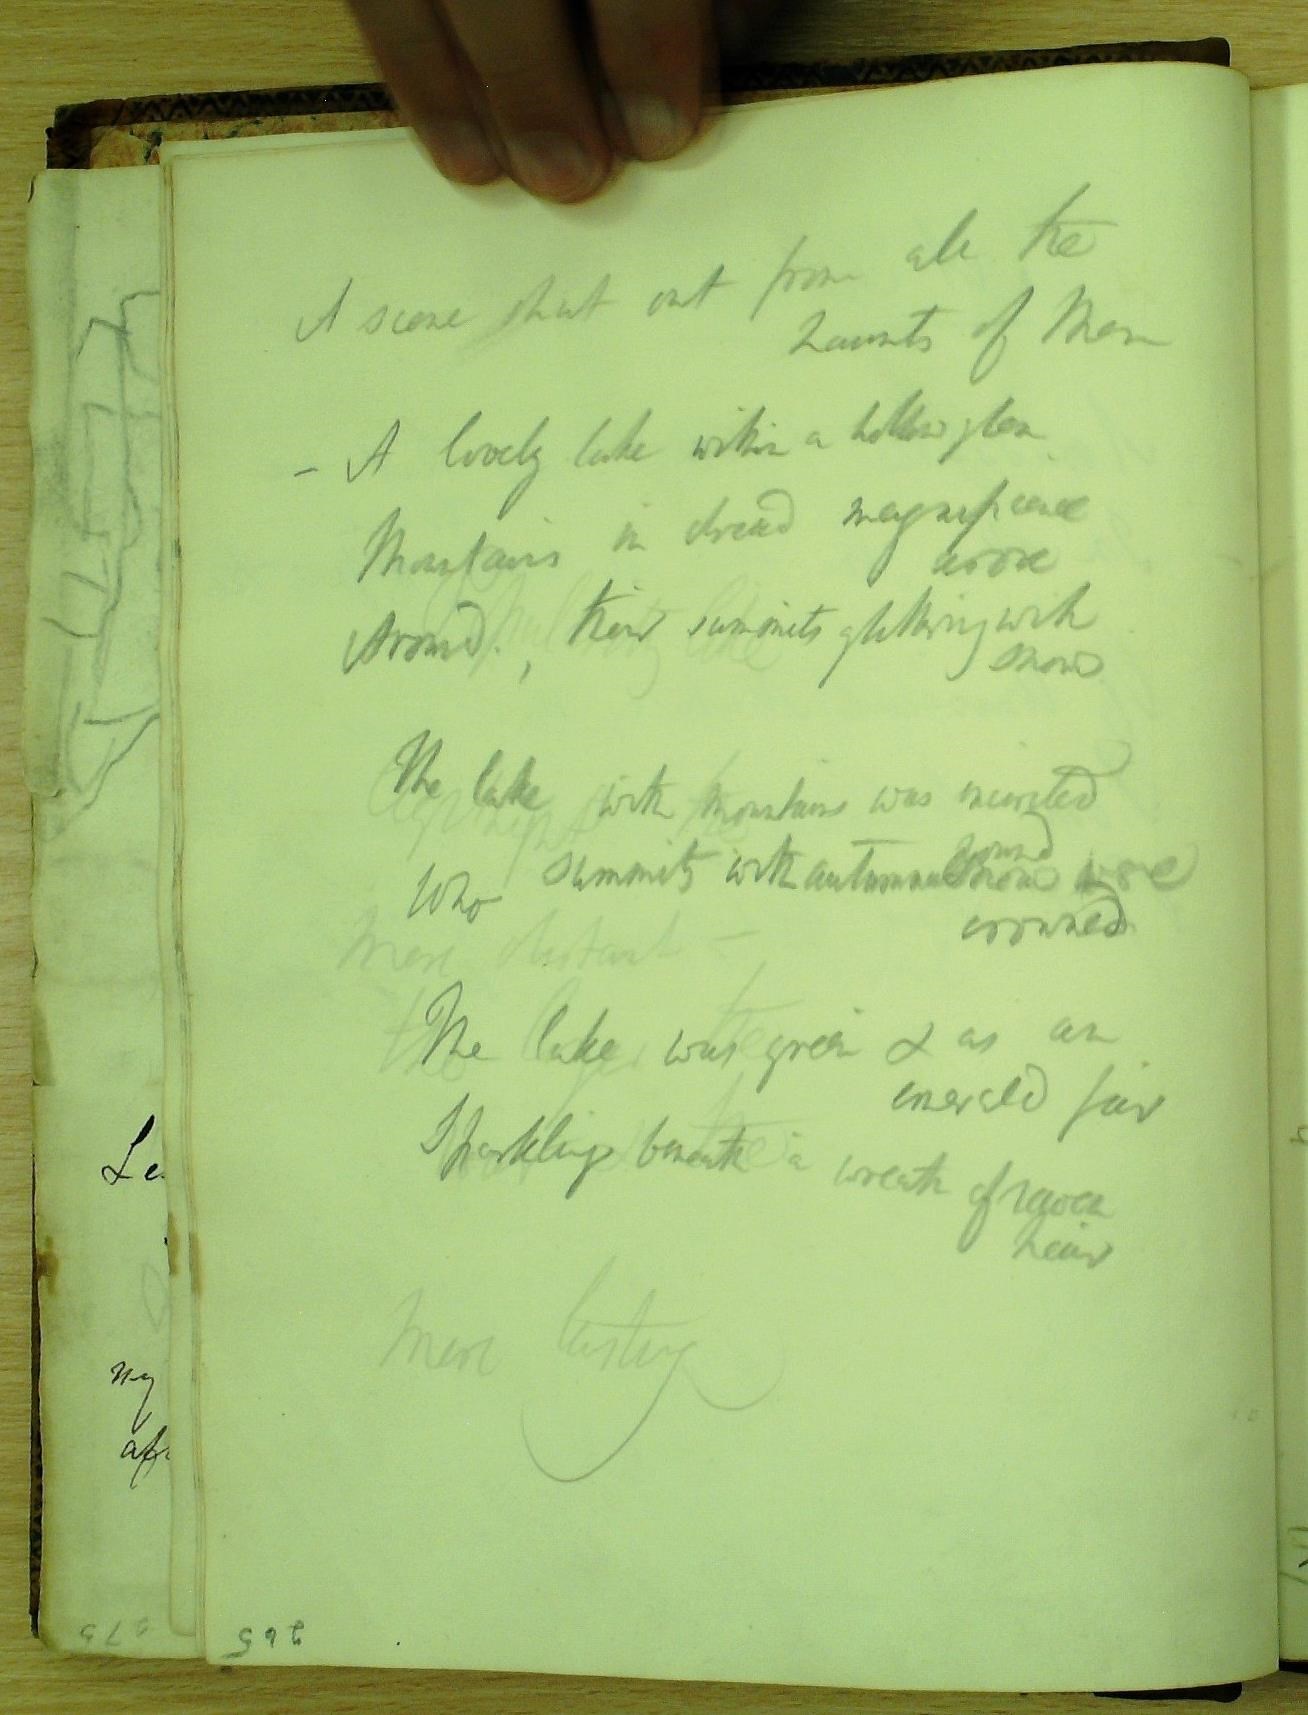 A scene shut out from all the
haunts of Men
- A lovely lake within a hollow glen
Mountains in dread magnificence
arose
Around, their summits glittering with
snows
The lake with mountains was
round
Who summits with autumnal snow were
crowned
More distant -
The lake was green & as an
emerald fair
Sparkling beneath a wreath of raven
hair
More lasting
Le
my
265